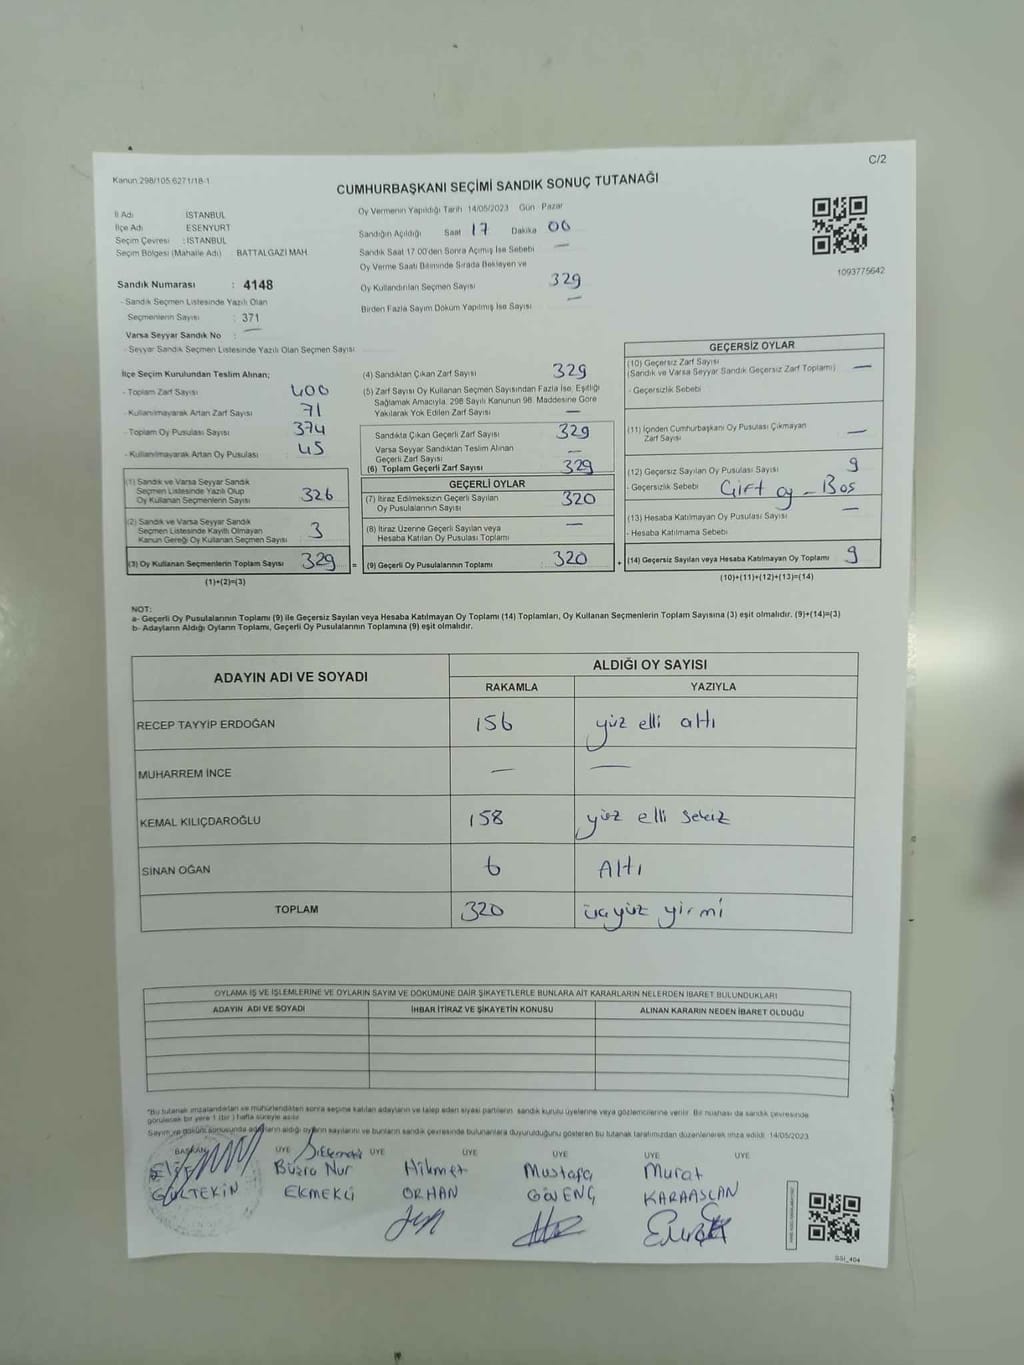 C/2
Kanun:298/105,6271/18-1
CUMHURBAŞKANI SEÇİMİ SANDIK SONUÇ TUTANAĞI
İl Adı : İSTANBUL
İlçe Adı : ESENYURT
Seçim Çevresi : İSTANBUL
Seçim Bölgesi (Mahalle Adı) BATTALGAZİ MAH.
Oy Vermenin Yapıldığı Tarih 14/05/2023 Gün Pazar
Sandığın Açıldığı Saat 17 Dakika 00
Sandık Saat 17.00'den Sonra Açılmış İse Sebebi —
Oy Verme Saati Bitiminde Sırada Bekleyen ve
Oy Kullandırılan Seçmen Sayısı 329
Birden Fazla Sayım Döküm Yapılmış İse Sayısı —
1093775642
Sandık Numarası : 4148
- Sandık Seçmen Listesinde Yazılı Olan
Seçmenlerin Sayısı : 371
Varsa Seyyar Sandık No : —
- Seyyar Sandık Seçmen Listesinde Yazılı Olan Seçmen Sayısı
İlçe Seçim Kurulundan Teslim Alınan;
- Toplam Zarf Sayısı 400
- Kullanılmayarak Artan Zarf Sayısı 71
- Toplam Oy Pusulası Sayısı 374
- Kullanılmayarak Artan Oy Pusulası 45
(1) Sandık ve Varsa Seyyar Sandık
Seçmen Listesinde Yazılı Olup
Oy Kullanan Seçmenlerin Sayısı 326
(2) Sandık ve Varsa Seyyar Sandık
Seçmen Listesinde Kayıtlı Olmayan
Kanun Gereği Oy Kullanan Seçmen Sayısı 3
(3) Oy Kullanan Seçmenlerin Toplam Sayısı 329 =
(1)+(2)=(3)
(4) Sandıktan Çıkan Zarf Sayısı 329
(5) Zarf Sayısı Oy Kullanan Seçmen Sayısından Fazla İse, Eşitliği
Sağlamak Amacıyla, 298 Sayılı Kanunun 98. Maddesine Göre
Yakılarak Yok Edilen Zarf Sayısı —
Sandıkta Çıkan Geçerli Zarf Sayısı 329
Varsa Seyyar Sandıktan Teslim Alınan
Geçerli Zarf Sayısı —
(6) Toplam Geçerli Zarf Sayısı 329
GEÇERLİ OYLAR
(7) İtiraz Edilmeksizin Geçerli Sayılan
Oy Pusulalarının Sayısı 320
(8) İtiraz Üzerine Geçerli Sayılan veya
Hesaba Katılan Oy Pusulası Toplamı —
(9) Geçerli Oy Pusulalarının Toplamı 320 +
GEÇERSİZ OYLAR
(10) Geçersiz Zarf Sayısı
(Sandık ve Varsa Seyyar Sandık Geçersiz Zarf Toplamı) —
- Geçersizlik Sebebi
(11) İçinden Cumhurbaşkanı Oy Pusulası Çıkmayan
Zarf Sayısı —
(12) Geçersiz Sayılan Oy Pusulası Sayısı 9
- Geçersizlik Sebebi Çift oy - Boş
(13) Hesaba Katılmayan Oy Pusulası Sayısı —
- Hesaba Katılmama Sebebi
(14) Geçersiz Sayılan veya Hesaba Katılmayan Oy Toplamı 9
(10)+(11)+(12)+(13)=(14)
NOT:
a- Geçerli Oy Pusulalarının Toplamı (9) ile Geçersiz Sayılan veya Hesaba Katılmayan Oy Toplamı (14) Toplamları, Oy Kullanan Seçmenlerin Toplam Sayısına (3) eşit olmalıdır. (9)+(14)=(3)
b- Adayların Aldığı Oyların Toplamı, Geçerli Oy Pusulalarının Toplamına (9) eşit olmalıdır.
ADAYIN ADI VE SOYADI
ALDIĞI OY SAYISI
RAKAMLA YAZIYLA
RECEP TAYYİP ERDOĞAN 156 yüz elli altı
MUHARREM İNCE — —
KEMAL KILIÇDAROĞLU 158 yüz elli sekiz
SİNAN OĞAN 6 Altı
TOPLAM 320 üçyüz yirmi
OYLAMA İŞ VE İŞLEMLERİNE VE OYLARIN SAYIM VE DÖKÜMÜNE DAİR ŞİKAYETLERLE BUNLARA AİT KARARLARIN NELERDEN İBARET BULUNDUKLARI
ADAYIN ADI VE SOYADI İHBAR İTİRAZ VE ŞİKAYETİN KONUSU ALINAN KARARIN NEDEN İBARET OLDUĞU
"Bu tutanak imzalandıktan ve mühürlendikten sonra seçime katılan adayların ve talep eden siyasi partilerin sandık kurulu üyelerine veya gözlemcilerine verilir. Bir nüshası da sandık çevresinde
görülecek bir yere 1 (bir ) hafta süreyle asılır
Sayım ve döküm sonucunda adayların aldığı oyların sayılarını ve bunların sandık çevresinde bulunanlara duyurulduğunu gösteren bu tutanak tarafımızdan düzenlenerek imza edildi. 14/05/2023
BAŞKAN ÜYE ÜYE ÜYE ÜYE ÜYE ÜYE
Elif Büşra Nur Hikmet Mustafa Murat
GÜLTEKİN EKMEKÇİ ORHAN GÜVENÇ KARAASLAN
SSI_404